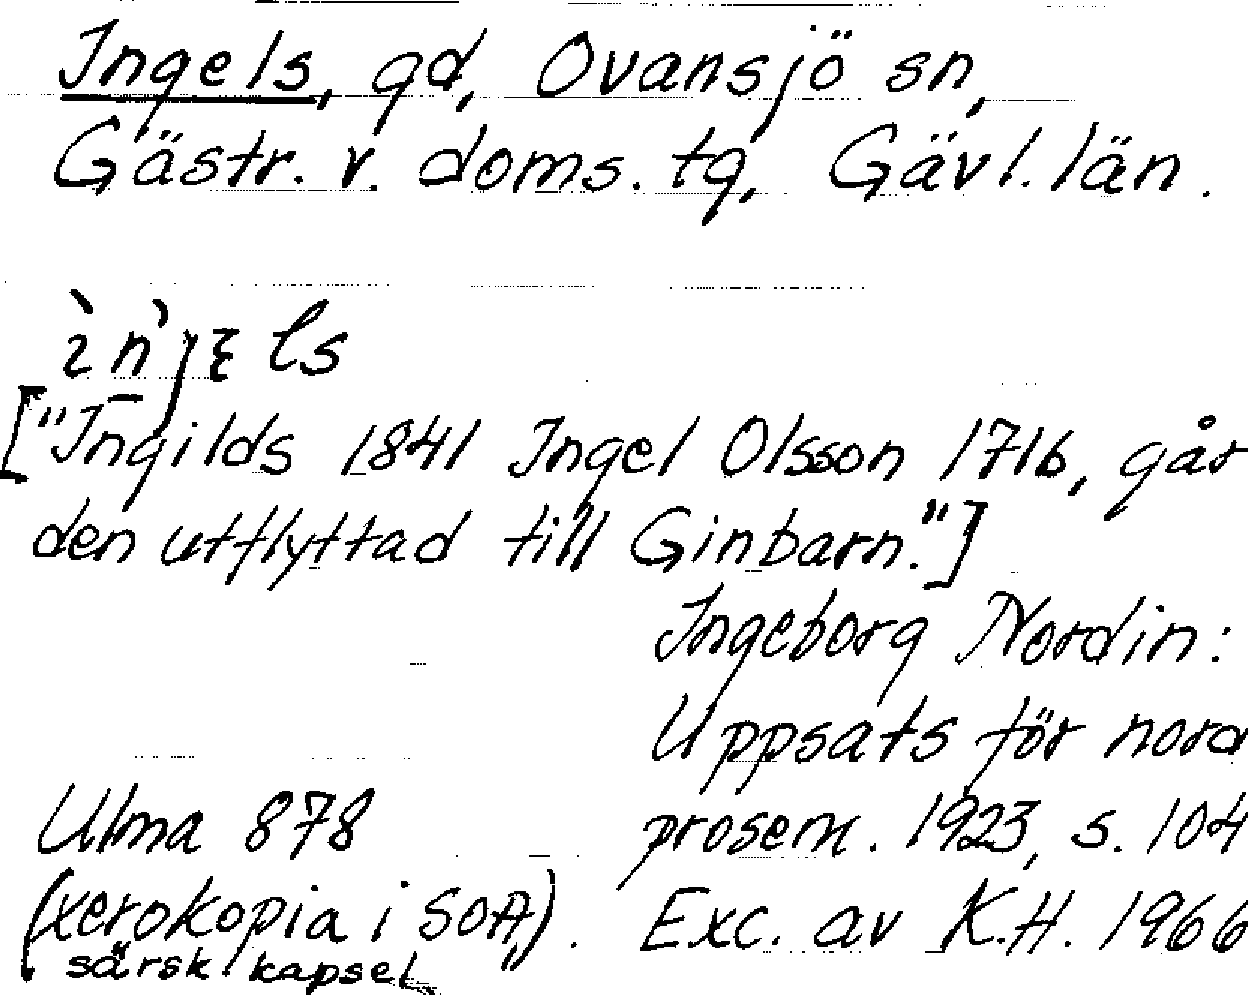 Ingels, gd, Ovansjö sn,
Gästr. v. doms. tg, Gävl. län.
ìn̠jɛls
["Ingilds 1841 Ingel Olsson 1716, går
den utflyttad till Ginbarn."]
Ingeborg Nordin:
Uppsats för nord
prosem. 1923, s. 104
Ulma 878
(xerokopia i SOA,).
Exc. av K.H. 1966
särsk. kapsel